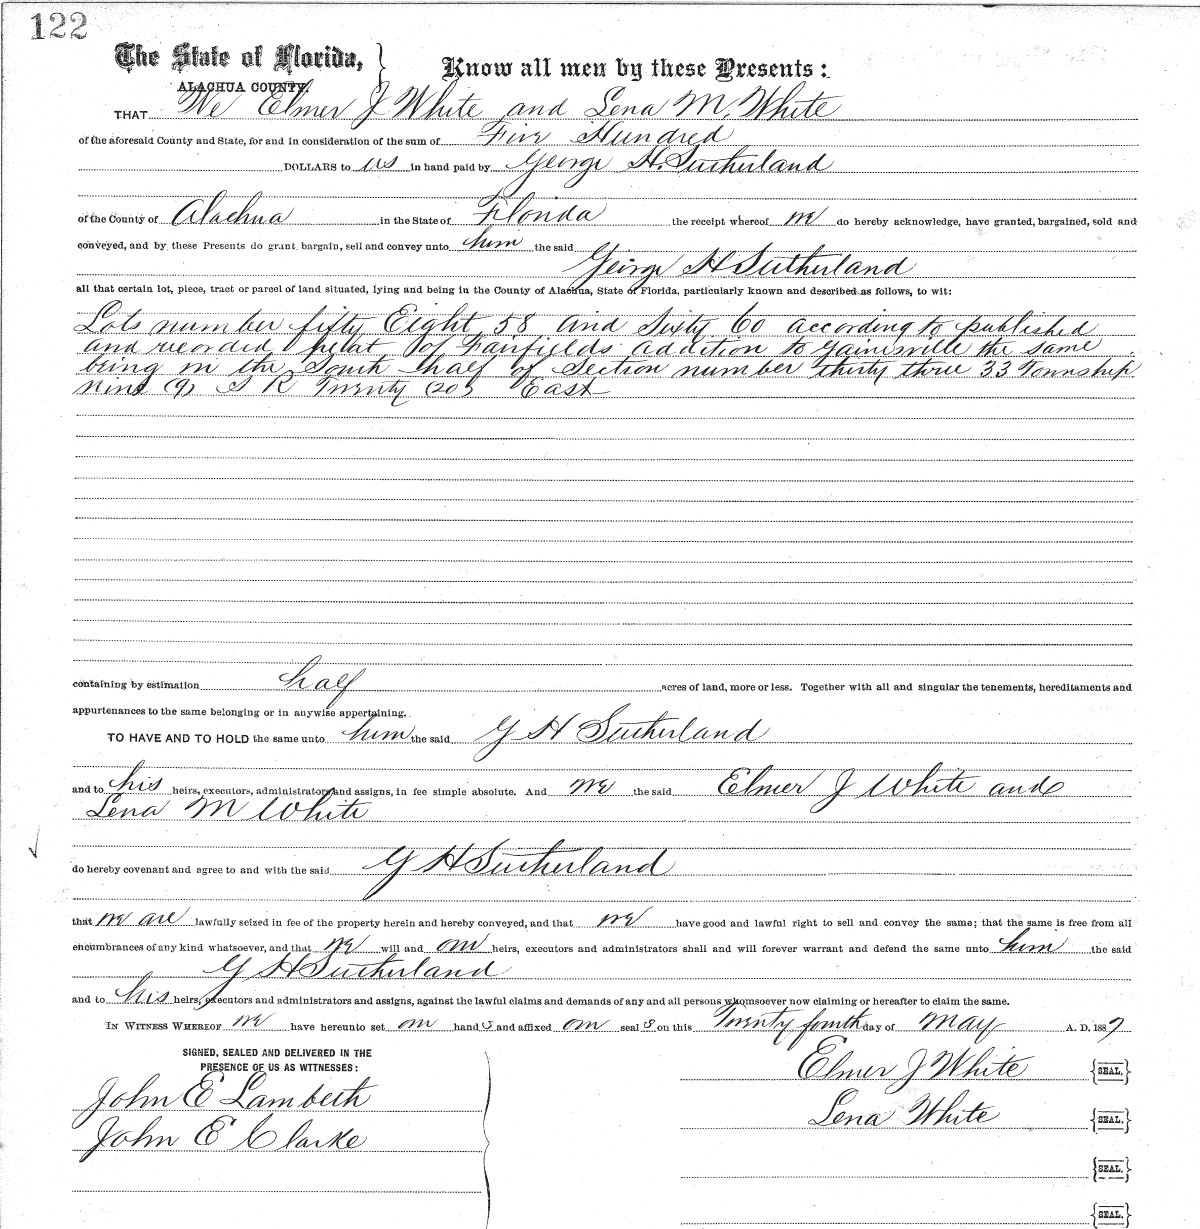 122
The State of Florida,
ALACHUA COUNTY.
Know all men by these Presents:
THAT We Elmer J White and Lena M. White
of the aforesaid County and State, for and in consideration of the sum of Five Hundred
DOLLARS to us in hand paid by George H. Sutherland
of the County of Alachua in the State of Florida the receipt whereof we do hereby acknowledge, have granted, bargained, sold and
conveyed, and by these Presents do grant, bargain, sell and convey unto him the said
George H Sutherland
all that certain lot, piece, tract or parcel of land situated, lying and being in the County of Alachua, State of Florida, particularly known and described as follows, to wit:
Lots number fifty Eight 58 and Sixty 60 according to published
and recorded plat of Fairfields addition to Gainesville the same
being in the South half of Section number thirty three 33 Township
nine (9) S R Twenty (20) East
containing by estimation half acres of land, more or less. Together with all and singular the tenements, hereditaments and
appurtenances to the same belonging or in anywise appertaining.
TO HAVE AND TO HOLD the same unto him the said G H Sutherland
and to his heirs, executors, administrators and assigns, in fee simple absolute. And we the said Elmer J White and
Lena M White
do hereby covenant and agree to and with the said G H Sutherland
that we are lawfully seized in fee of the property herein and hereby conveyed, and that we have good and lawful right to sell and convey the same; that the same is free from all
encumbrances of any kind whatsoever, and that we will and our heirs, executors and administrators shall and will forever warrant and defend the same unto him the said
G H Sutherland
and to his heirs, executors and administrators and assigns, against the lawful claims and demands of any and all persons whomsoever now claiming or hereafter to claim the same.
IN WITNESS WHEREOF we have hereunto set our hand s and affixed our seal s on this Twenty fourth day of May A. D. 1887
SIGNED, SEALED AND DELIVERED IN THE
PRESENCE OF US AS WITNESSES:
Elmer J White {SEAL.}
John E Lambeth
Lena White {SEAL.}
John E Clarke
{SEAL.}
{SEAL.}